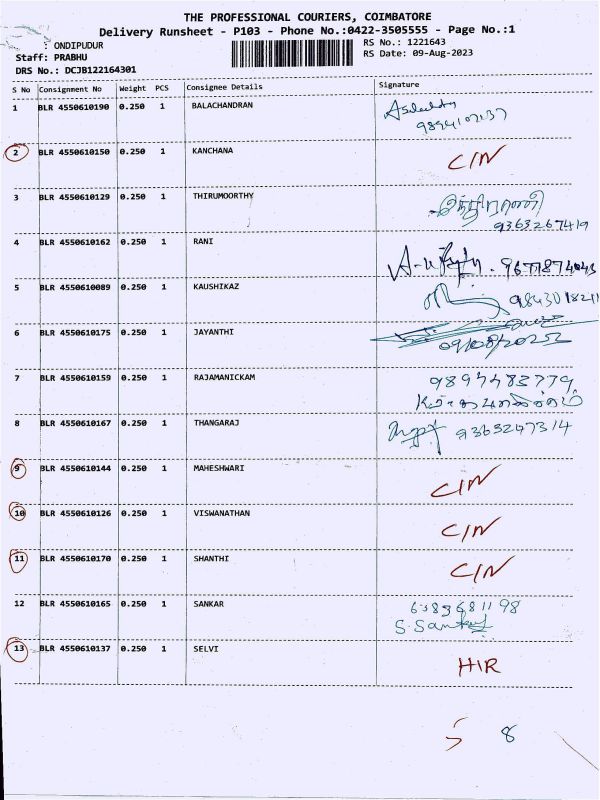 THE PROFESSIONAL COURIERS, COIMBATORE
Delivery Runsheet - P103 - Phone No.:0422-3505555 - Page No.:1
: ONDIPUDUR
RS No.: 1221643
Staff: PRABHU
RS Date: 09-Aug-2023
DRS No.: DCJB122164301
S No Consignment No Weight PCS Consignee Details Signature
1 BLR 4550610190 0.250 1 BALACHANDRAN
2 BLR 4550610150 0.250 1 KANCHANA C/N
3 BLR 4550610129 0.250 1 THIRUMOORTHY
9363267419
4 BLR 4550610162 0.250 1 RANI
9677874043
5 BLR 4550610089 0.250 1 KAUSHIKAZ
6 BLR 4550610175 1 0.250 JAYANTHI
7 BLR 4550610159 0.250 1 RAJAMANICKAM
8 BLR 4550610167 0.250 1 THANGARAJ 9363247314
9 BLR 4550610144 0.250 1 MAHESHWARI C/N
10 BLR 4550610126 0.250 1 VISWANATHAN C/N
11 BLR 4550610170 0.250 1 SHANTHI C/N
12 BLR 4550610165 0.250 1 SANKAR
S. Sankar
13 BLR 4550610137 0.250 1 SELVI HIR
5 8